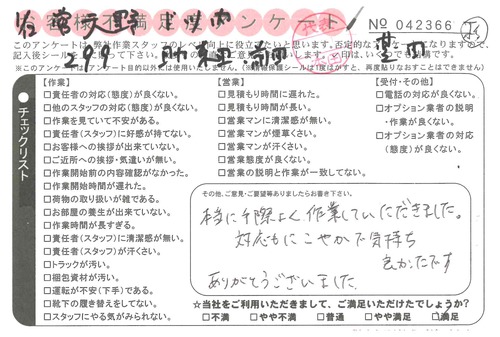 お客様不満足度アンケート
No 042366
このアンケートは、弊社作業スタッフのレベル向上に役立てたいと思います。否定的なアンケートになりますので、
【作業】
□責任者の対応(態度)が良くない。
□他のスタッフの対応(態度)が良くない。
□作業を見ていて不安がある。
□責任者(スタッフ)に好感が持てない。
□お客様への挨拶が出来ていない。
□ご近所への挨拶・気遣いが無い。
□作業開始前の内容確認がなかった。
□作業開始時間が遅れた。
□荷物の取り扱いが雑である。
□お部屋の養生が出来ていない。
□作業時間が長すぎる。
□責任者(スタッフ)に清潔感が無い。
□責任者(スタッフ)が汗くさい。
□トラックが汚い。
□梱包資材が汚い。
□運転が不安(下手)である。
□靴下の履き替えをしてない。
□スタッフにやる気がみられない。
【営業】
□見積もり時間に遅れた。
□見積もり時間が長い。
□営業マンに清潔感が無い。
□営業マンが煙草くさい。
□営業マンが汗くさい。
□営業態度が良くない。
□営業の説明と作業が一致してない。
【受付・その他】
□電話の対応が良くない。
□オプション業者の説明
・作業が良くない。
□オプション業者の対応
(態度)が良くない。
●チェックリスト
その他、ご意見・ご要望等ありましたらお書き下さい。
本当に手際よく作業していただきました。
対応もにこやかで気持ち
良かったです
ありがとうございました
☆当社をご利用いただきまして、ご満足いただけたでしょうか?
□不満 □やや不満 □普通 □やや満足 □満足